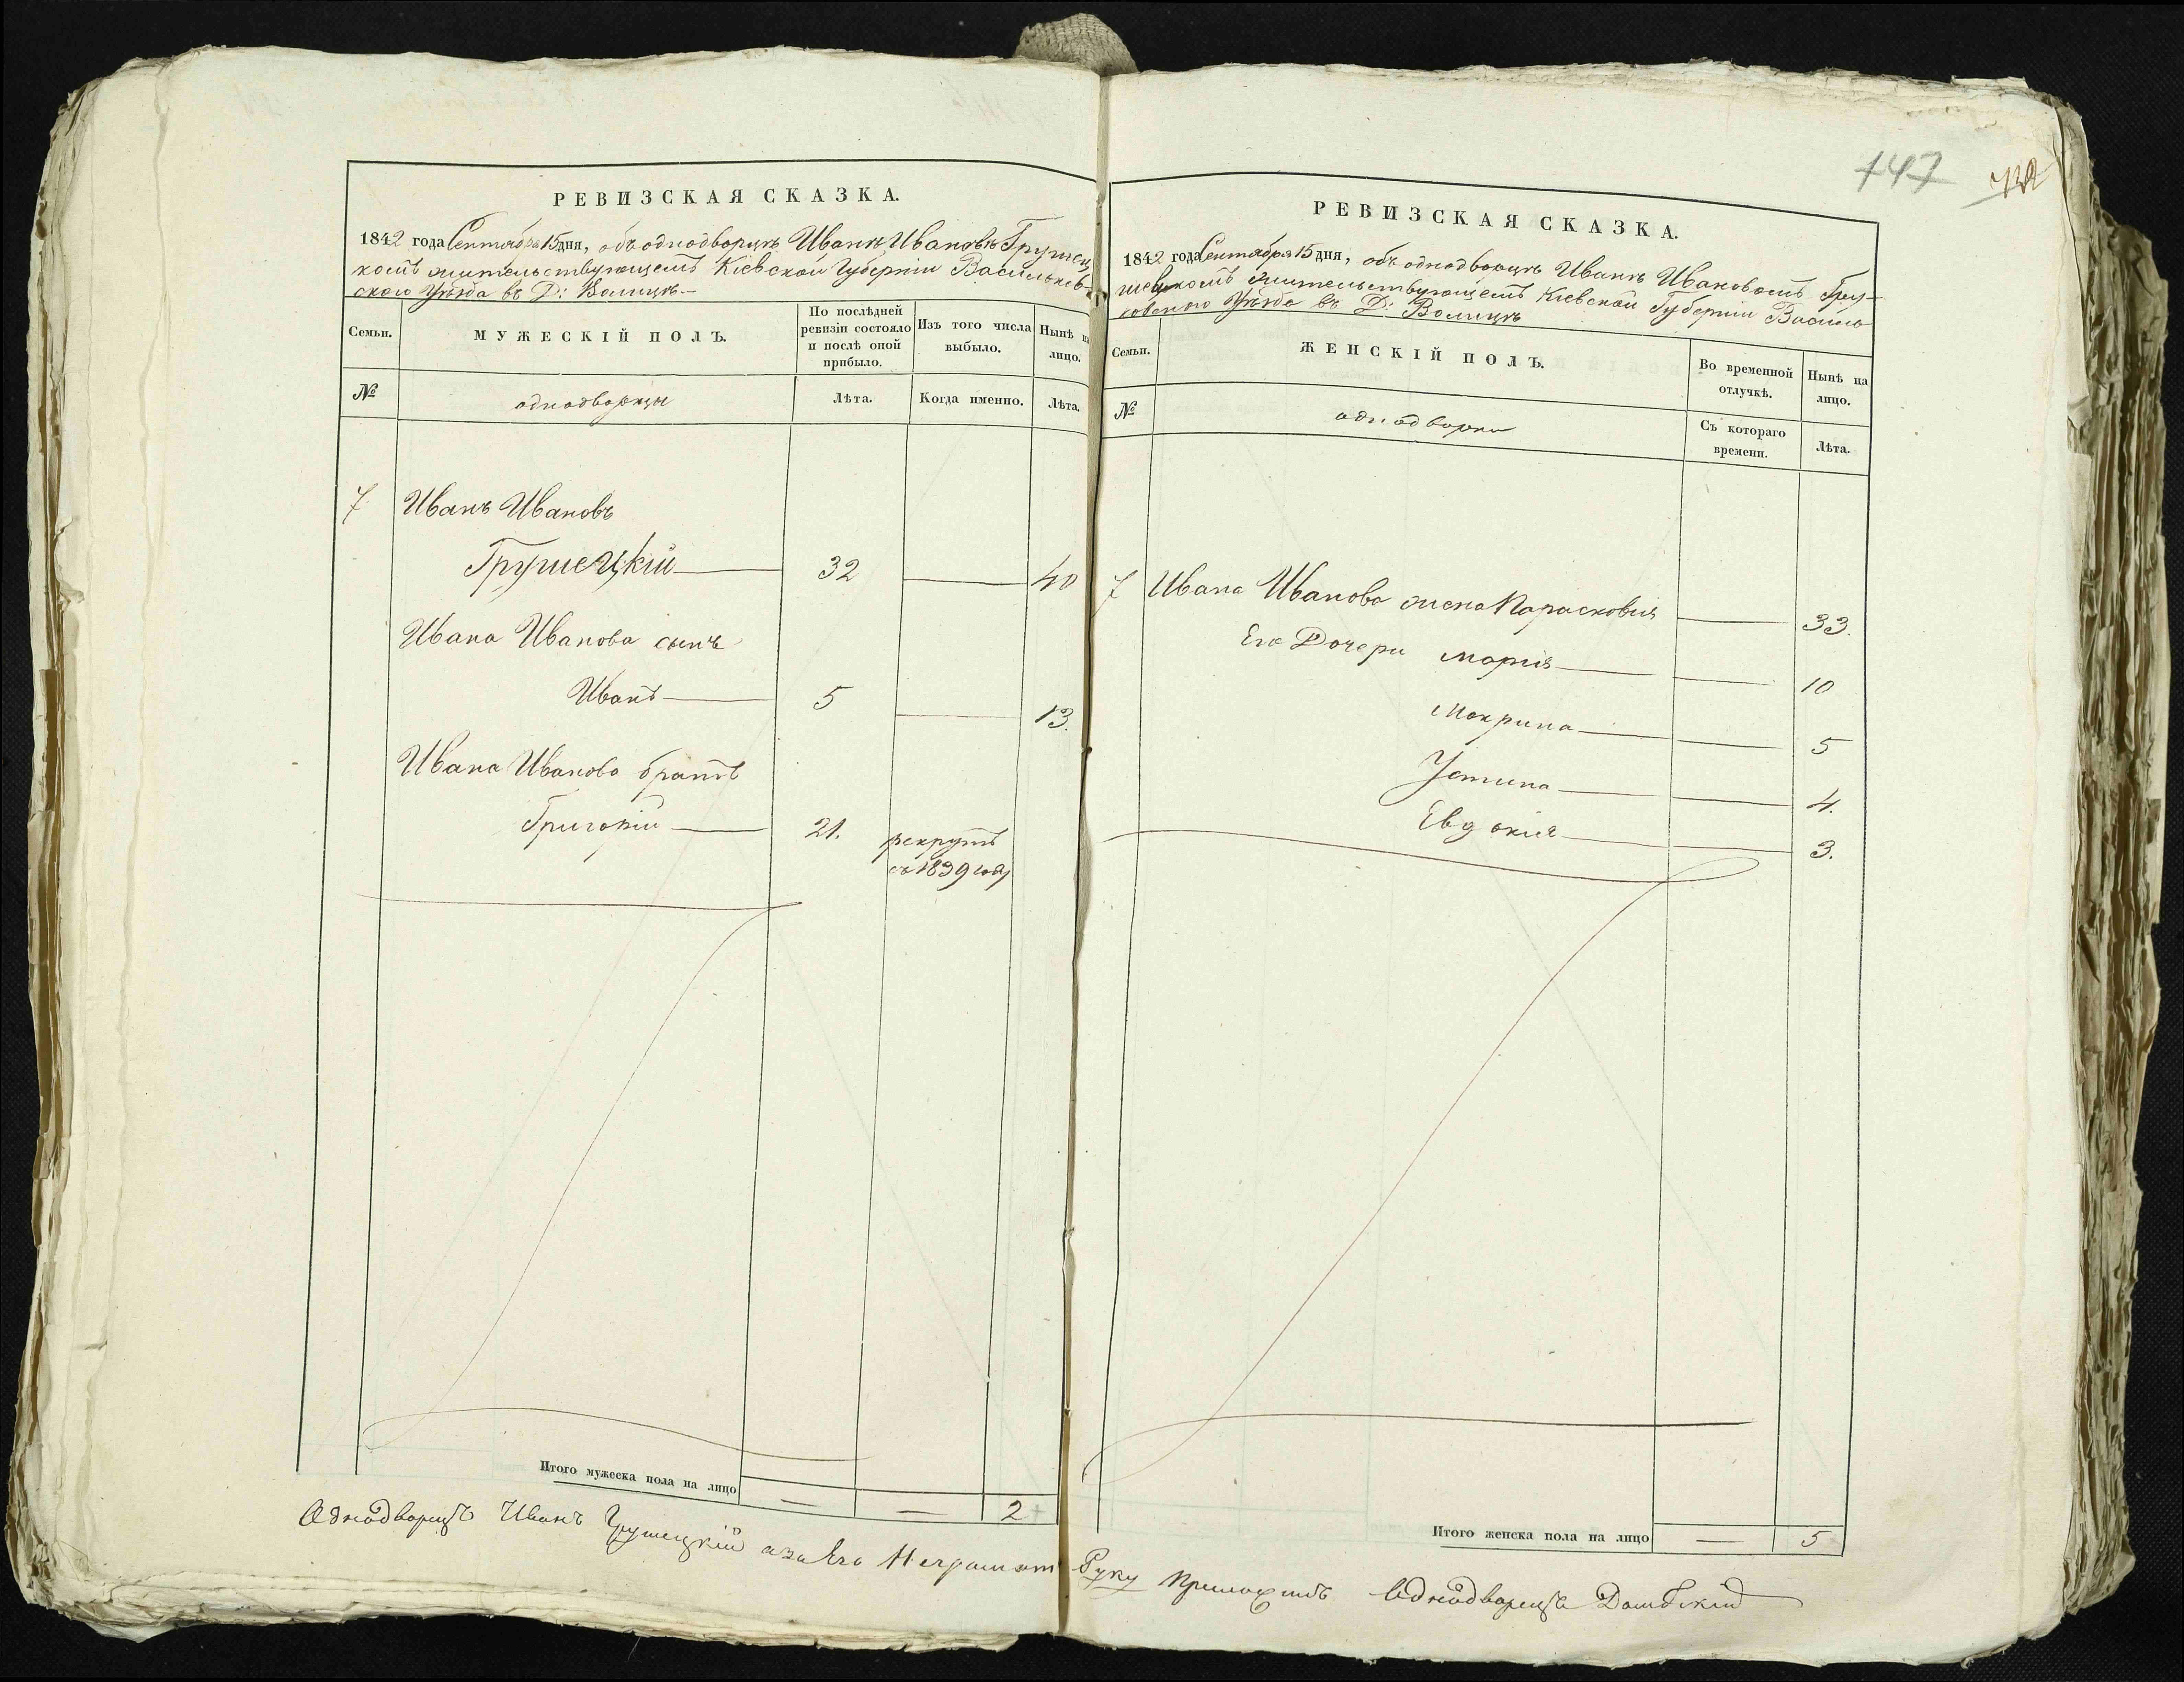 РЕВИЗСКАЯ СКАЗКА.
1842 года Сентября 15 дня, объ однодворцѣ Иванѣ Ивановѣ Грушец
комъ жительствующемъ Кіевской Губерніи Васильков-
ского Уѣзда въ Д: Волицѣ-
Семьи.
МУЖЕСКІЙ ПОЛЪ.
По послѣдней ревизіи состояло и послѣ оной прибыло.
Изъ того числа выбыло.
Нынѣ на лицо.
№
однодворцы
Лѣта.
Когда именно.
Лѣта.
7 Иванъ Ивановъ
Грушецкій 32 40
Ивана Иванова сынъ
Иванъ 5 13.
Ивана Иванова братъ
Григорій 21. рекрутъ
съ 1839 году
Итого мужеска пола на лицо — — 2
147
РЕВИЗСКАЯ СКАЗКА.
1842 года Сентября 15 дня, объ однодворцѣ Иванѣ Ивановомъ Гру-
шецкомъ жительствующемъ Кіевской Губерніи Василь
ковского Уѣзда въ Д: Волицѣ
Семьи.
ЖЕНСКІЙ ПОЛЪ.
Во временной отлучкѣ.
Нынѣ на лицо.
№
однодворки
Съ котораго времени.
Лѣта.
7 Ивана Иванова жена Парасковія 33.
Его Дочери Марія 10
Мокрина 5
Устина 4.
Евдокія 3.
Итого женска пола на лицо — 5
Однодворецъ Иванъ Грушецкій а за Его Неграмот Руку приложилъ Однодворецъ